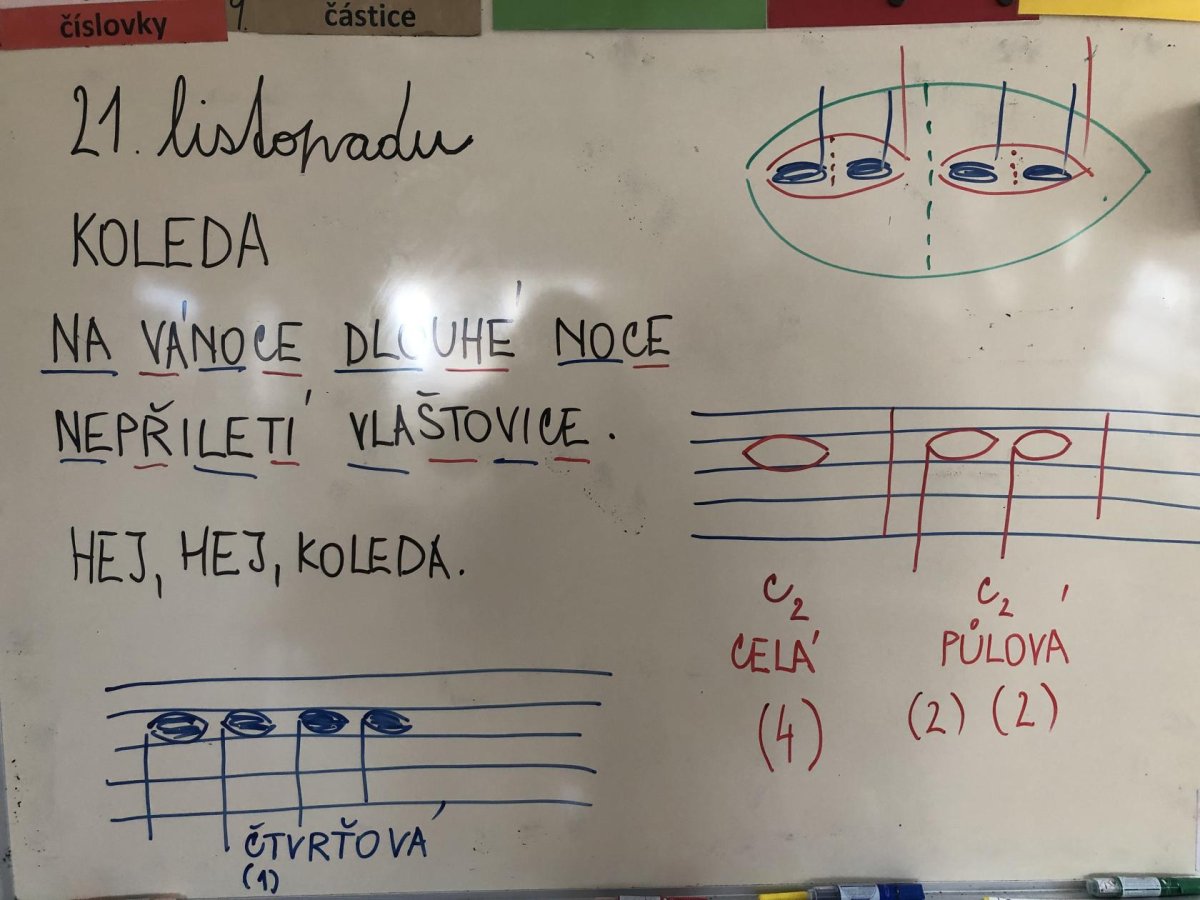 číslovky
částice
21. listopadu
KOLEDA
NA VÁNOCE DLOUHÉ NOCE
NEPŘILETÍ VLAŠTOVICE.
HEJ, HEJ, KOLEDA.
ČTVRŤOVÁ
(1)
C2 C2
CELÁ PŮLOVÁ
(4) (2) (2)